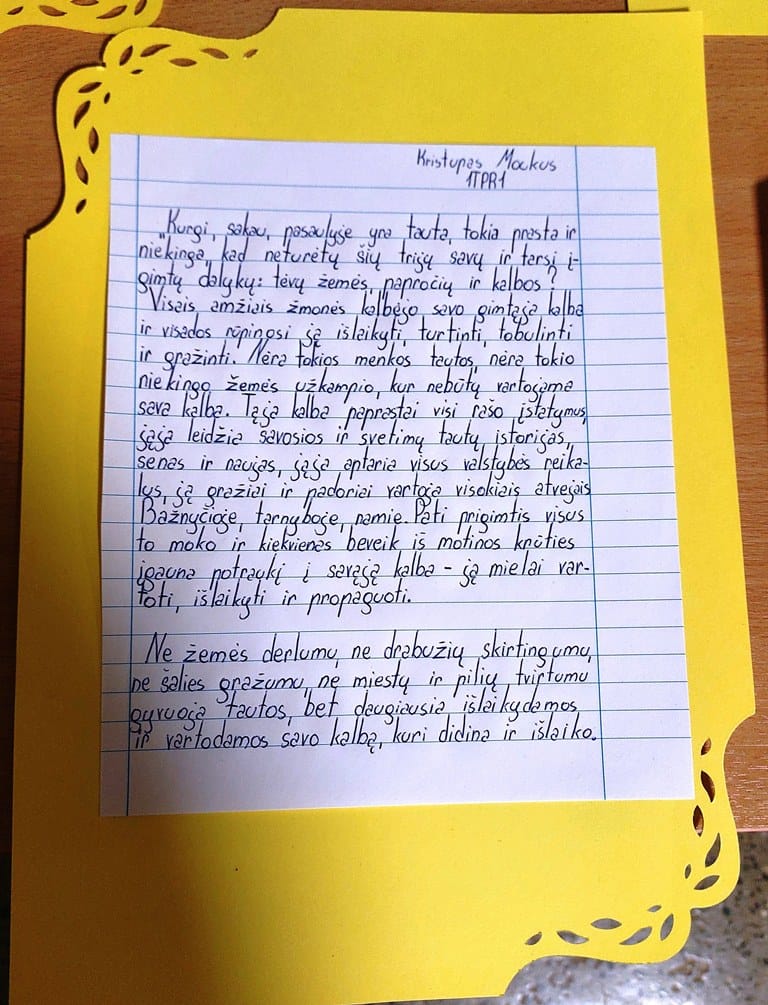 Kristupas Mockus
1TPR1
„Kurgi, sakau, pasaulyje yra tauta, tokia prasta ir
niekinga, kad neturėtų šių trijų savų ir tarsi į-
gimtų dalykų: tėvų žemės, papročių ir kalbos?
Visais amžiais žmonės kalbėjo savo gimtąja kalba
ir visados rūpinosi ją išlaikyti, turtinti, tobulinti
ir gražinti. Nėra tokios menkos tautos, nėra tokio
niekingo žemės užkampio, kur nebūtų vartojama
sava kalba. Tąja kalba paprastai visi rašo įstatymus,
jąja leidžia savosios ir svetimų tautų istorijas,
senas ir naujas, jąja aptaria visus valstybės reika-
lus, ją gražiai ir padoriai vartoja visokiais atvejais
Bažnyčioje, tarnyboje, namie. Pati prigimtis visus
to moko ir kiekvienas beveik iš motinos krūties
įgauna potraukį į savąją kalba - ją mielai var-
toti, išlaikyti ir propaguoti.
Ne žemės derlumu, ne drabužių skirtingumu,
ne šalies gražumu, ne miestų ir pilių tvirtumu
gyvuoja tautos, bet daugiausia išlaikydamos
ir vartodamos savo kalbą, kuri didina ir išlaiko.